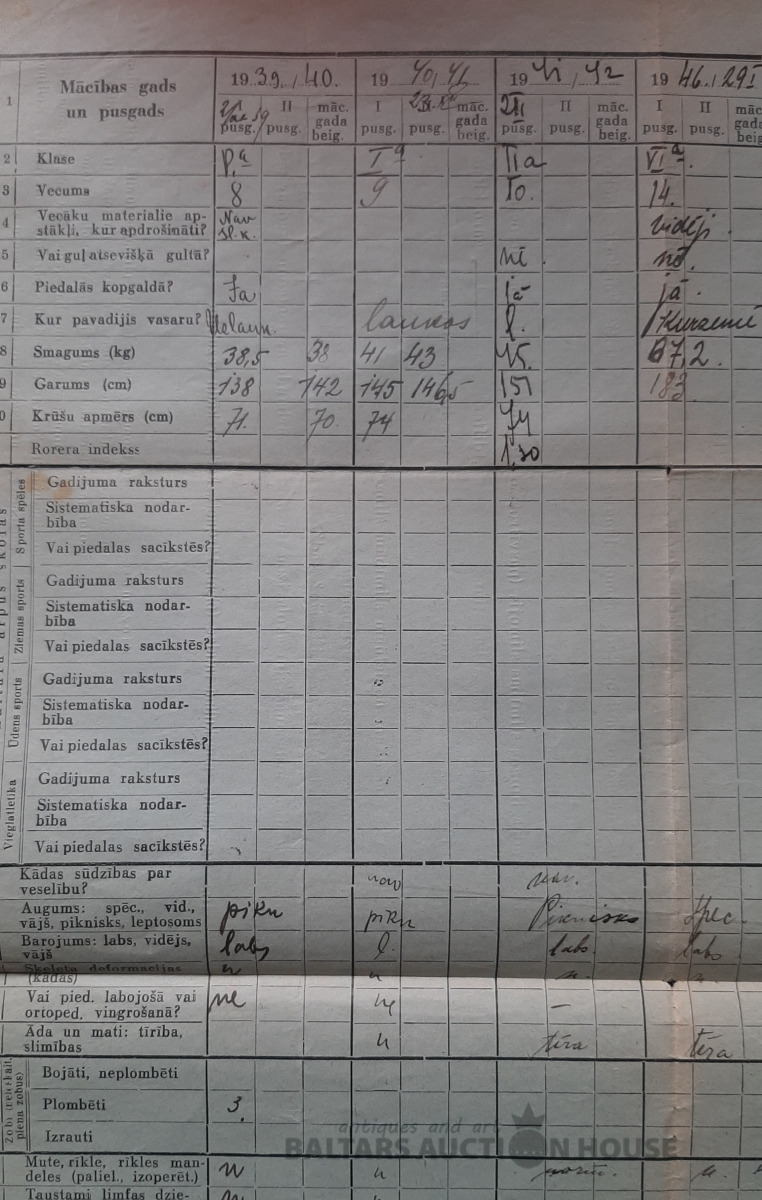 1 Mācības gads 19 39. / 40. 19 40/41 19 41/42 19 46. / 29 I
un pusgads II māc. I māc. II māc. I II māc.
pusg. pusg. gada beig. pusg. pusg. gada beig. pusg. pusg. gada beig. pusg. pusg. gada beig.
2 Klase P.a I a IIa VI a.
3 Vecums 8 9 10. 14.
4 Vecāku materialie ap- Nav
stākļi, kur apdrošināti? sl.k. vidēji.
5 Vai guļ atsevišķā gultā? nē. nē.
6 Piedalās kopgaldā? Ja jā jā.
7 Kur pavadijis vasaru? laukos l. Kurzemē
8 Smagums (kg) 38,5 38 41 43 45. 67,2.
9 Garums (cm) 138 142 145 146,5 151 183
0 Krūšu apmērs (cm) 71. 70. 74 74
Rorera indekss 1,30
Sporta spēles
Gadijuma raksturs
Sistematiska nodar-
bība
Vai piedalas sacīkstēs?
Ziemas sports
Gadijuma raksturs
Sistematiska nodar-
bība
Vai piedalas sacīkstēs?
Ūdens sports
Gadijuma raksturs
Sistematiska nodar-
bība
Vai piedalas sacīkstēs?
Vieglatletika
Gadijuma raksturs
Sistematiska nodar-
bība
Vai piedalas sacīkstēs?
Kādas sūdzības par nav nav.
veselību?
Augums: spēc., vid., pikn pikn Piknisks spec.
vājš, piknisks, leptosoms
Barojums: labs, vidējs, labs l. labs labs
vājš
Skeleta deformacijas n n n. n.
(kādas)
Vai pied. labojošā vai ne ne —
ortoped, vingrošanā?
Āda un mati: tīrība, n tīra tīra
slimības
Bojāti, neplombēti
Plombēti 3.
Izrauti
antiques and art
BALTARS AUCTION HOUSE
Mute, rīkle, rīkles man- n n norm. n.
deles (paliel., izoperēt.)
Taustami limfas dzie-